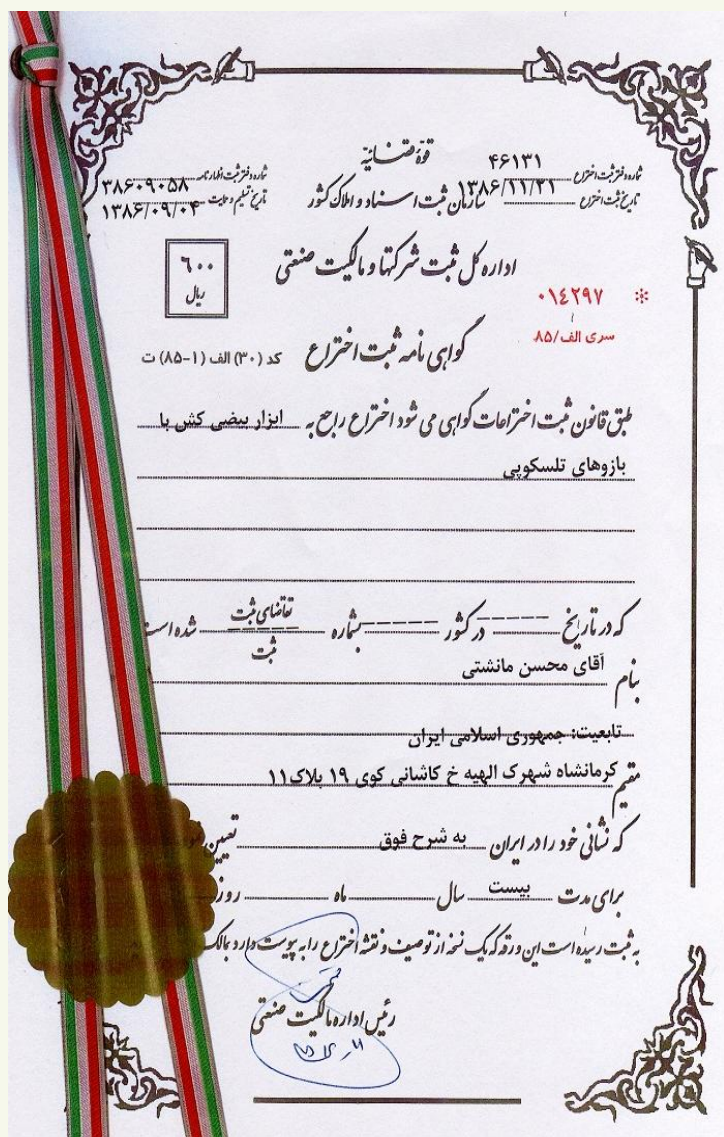 قوهٔ قضائیه
شماره دفتر ثبت اختراع ۴۶۱۳۱
تاریخ ثبت اختراع ۱۳۸۶/۱۱/۲۱
سازمان ثبت اسناد و املاک کشور
شماره دفتر ثبت اظهارنامه ۳۸۶۰۹۰۵۸
تاریخ تسلیم و حمایت ۱۳۸۶/۰۹/۰۴
اداره کل ثبت شرکتها و مالکیت صنعتی
۶۰۰
ریال
۰۱۴۲۹۷
سری الف/۸۵
گواهی نامه ثبت اختراع
کد (۳۰) الف (۱-۸۵) ت
طبق قانون ثبت اختراعات گواهی می شود اختراع راجع به ابزار بیضی کش با
بازوهای تلسکوپی
که در تاریخ ------ در کشور ------ بشماره تقاضای ثبت شده است
ثبت
بنام آقای محسن مانشتی
تابعیت: جمهوری اسلامی ایران
مقیم کرمانشاه شهرک الهیه خ کاشانی کوی ۱۹ پلاک۱۱
که نشانی خود را در ایران به شرح فوق تعیین
برای مدت بیست سال ماه روز
به ثبت رسیده است این ورقه که یک نسخه از توصیف و نقشه اختراع را به پیوست دارد بمالک
رئیس اداره مالکیت صنعتی